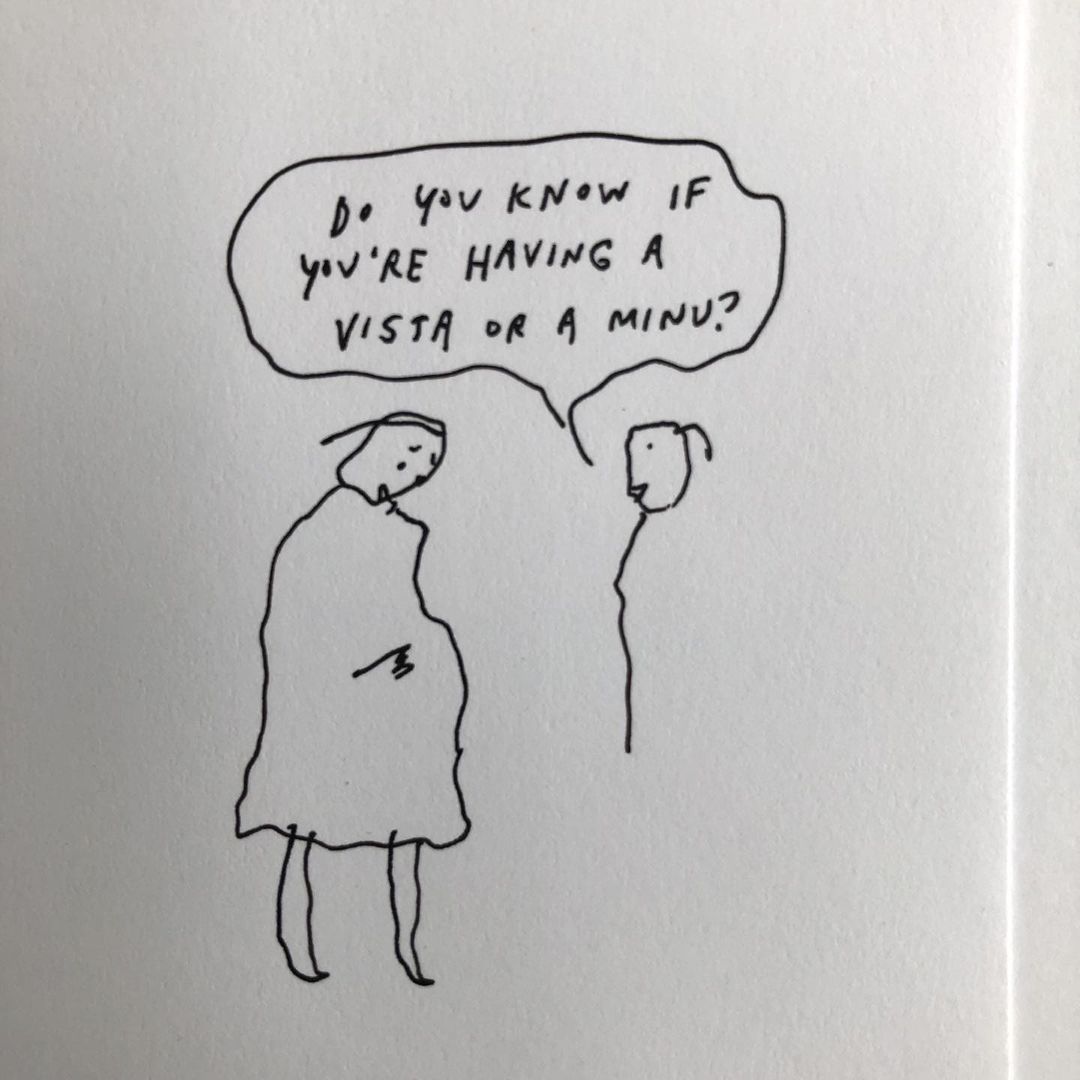 DO YOU KNOW IF
YOU'RE HAVING A
VISTA OR A MINU?